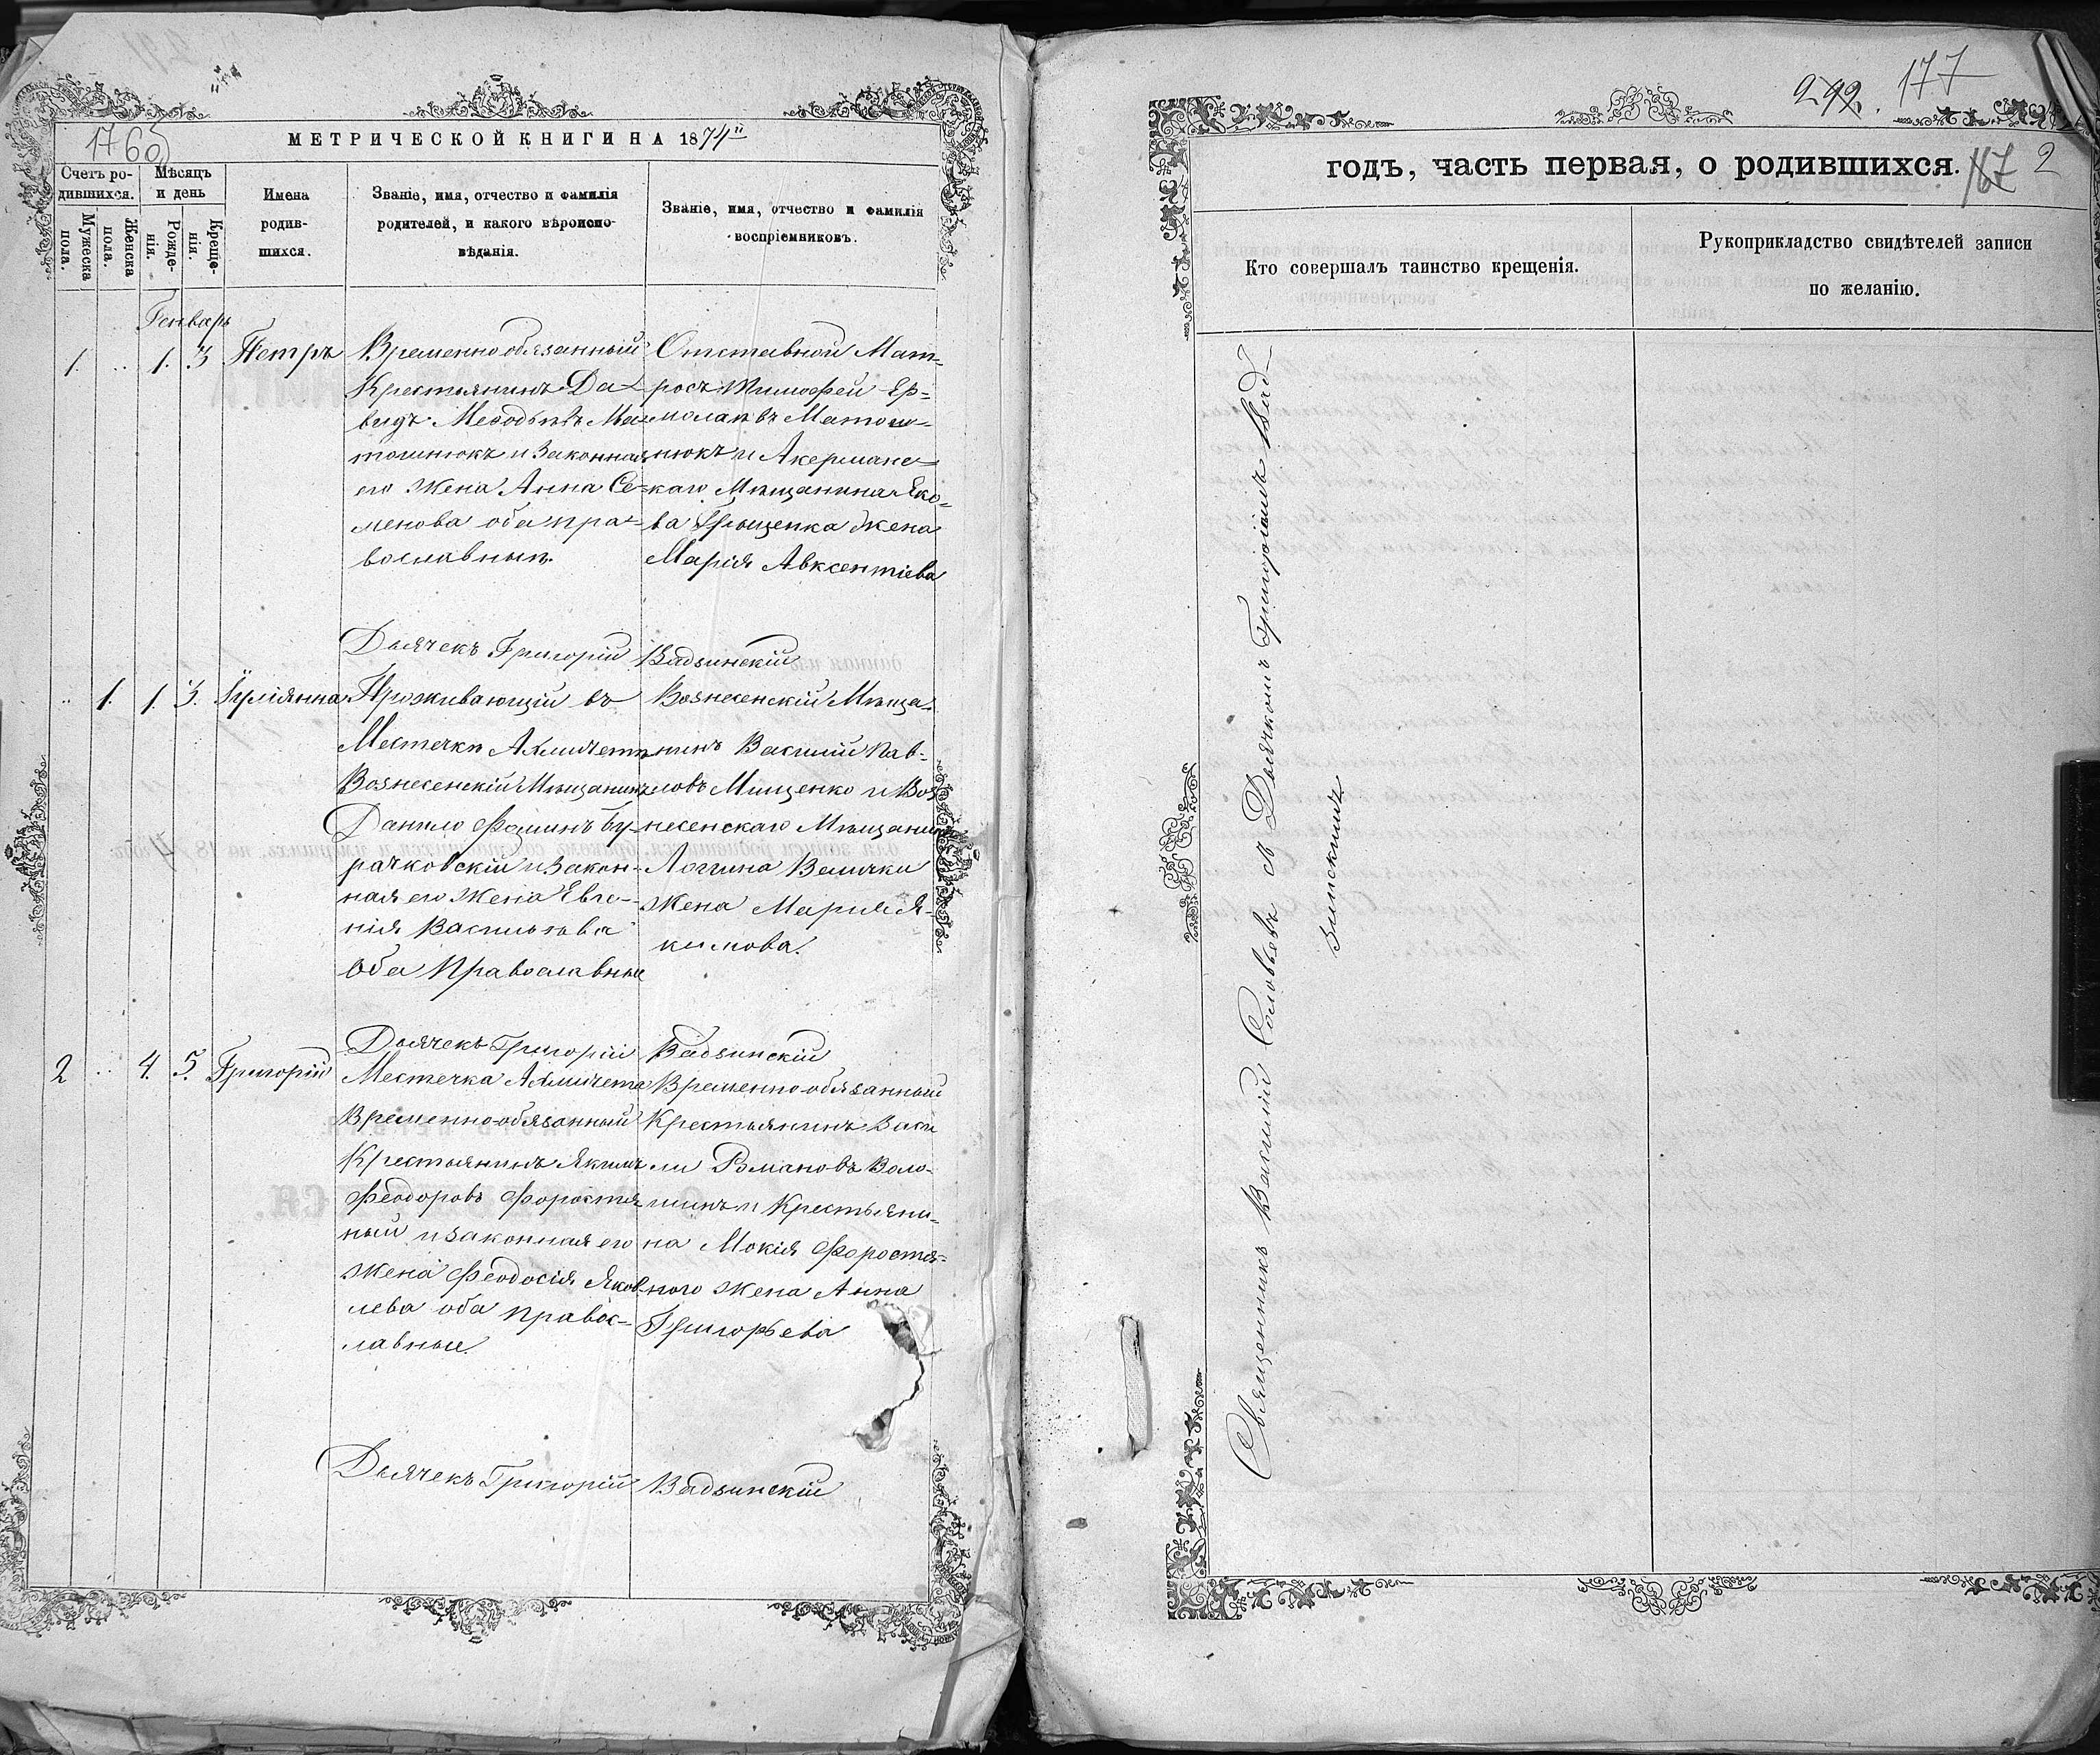 176об
МЕТРИЧЕСКОЙ КНИГИ НА 1874й
Счетъ ро-
дившихся.
Мѣсяцъ
и день
Мужеска
пола.
Женска
пола.
Рожде-
нія.
Креще-
нія.
Имена
родив-
шихся.
Званіе, имя, отчество и фамилія
родителей, и какого вѣроиспо-
вѣданія.
Званіе, имя, отчество и фамилія
воспріемниковъ.
Генварь
1. .. 1. 3 Петръ
Временнообязанный
Крестьянинъ Да-
видъ Меѳодьевъ Ма-
тошнюкъ и Законная
его жена Анна Се-
менова оба пра-
вославныи.
Отставной Мат-
росъ Тимофей Ер-
молаевъ Матош-
нюкъ и Акерманс-
каго Мѣщанина Яко-
ва Грыценка жена
Марія Авксентіева
Дьячекъ Григорій Вадзинскій
.. 1. 1. 3. Іуліянна
Проживающій въ
Местечки Ахмичети
Вознесенскій Мѣщанинъ
Данило Фоминъ Бу-
рачковскій и Закон-
ная его жена Евге-
нія Васильева
Оба Православные
Вознесенскій Мѣща-
нинъ Василій Пав-
ловъ Мищенко и Воз
несенскаго Мѣщанина
Логгина Велички
жена Марія Я-
кимова.
Дьячекъ Григорій Вадзинскій
2 .. 4. 5. Григорій
Местечка Ахмичета
Временно-обязанный
Крестьянинъ Якимъ
Феодоровъ Форостя
ный и законная его
жена Феодосія Яков
лева оба правос-
лавные.
Временно-обязанный
Крестьянинъ Васи
ли Романовъ Воло-
шинъ и Крестьяни-
на Мокія Форостя-
ного жена Анна
Григорьева
Дьячекъ Григорій Вадзинскій
292. 177
годъ, часть первая, о родившихся.
167 2
Кто совершалъ таинство крещенія.
Рукоприкладство свидѣтелей записи
по желанію.
Священникъ Василій Соловьевъ съ Дьячкомъ Григоріемъ Вад-
зинскимъ